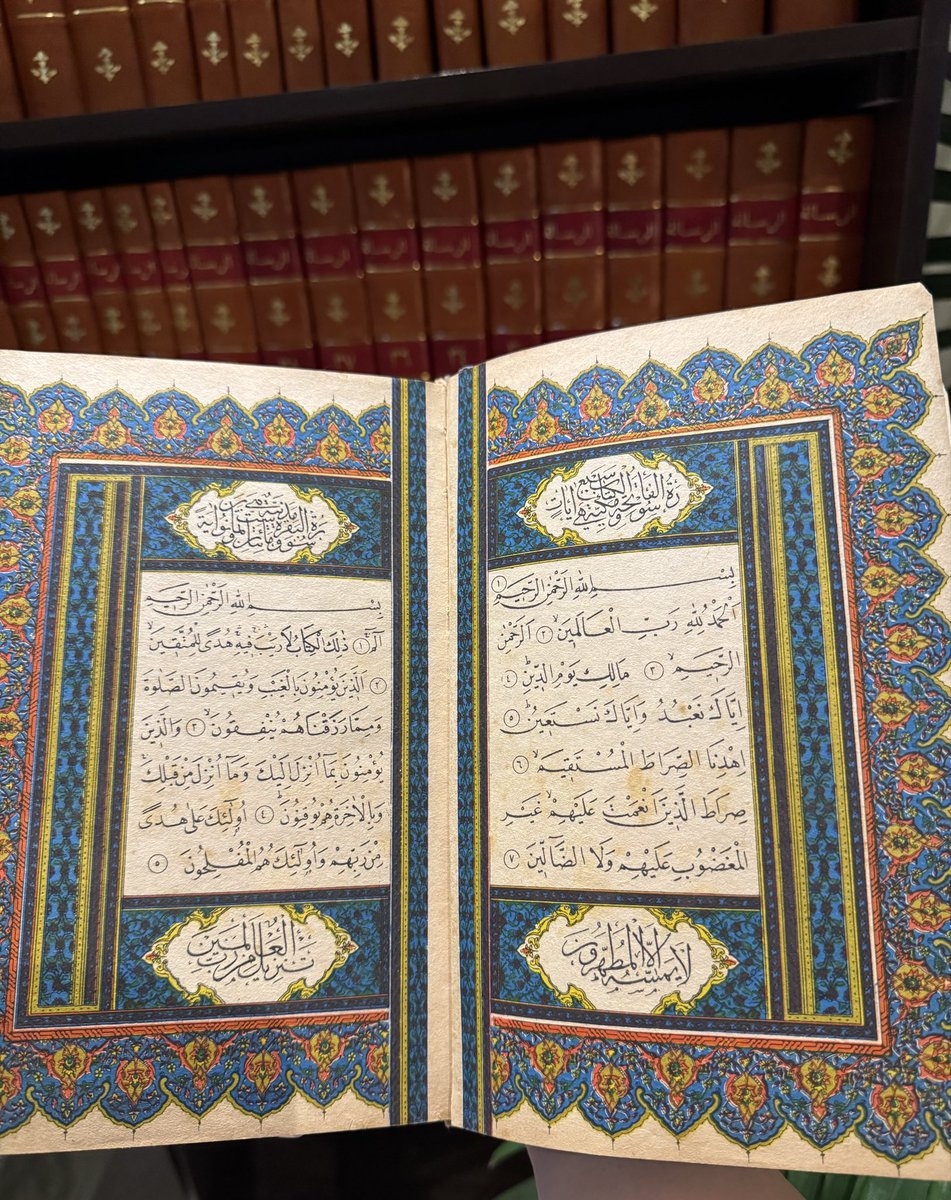 الرسالة الرسالة الرسالة الرسالة الرسالة الرسالة الرسالة الرسالة الرسالة الرسالة
بِسْمِ اللهِ الرَّحْمٰنِ الرَّحِيمِ ١
اَلْحَمْدُ لِلّٰهِ رَبِّ الْعَالَمِينَ ٢ اَلرَّحْمٰنِ
الرَّحِيمِ ٣ مَالِكِ يَوْمِ الدِّينِ ٤
اِيَّاكَ نَعْبُدُ وَاِيَّاكَ نَسْتَعِينُ ٥
اِهْدِنَا الصِّرَاطَ الْمُسْتَقِيمَ ٦
صِرَاطَ الَّذِينَ اَنْعَمْتَ عَلَيْهِمْ غَيْرِ
الْمَغْضُوبِ عَلَيْهِمْ وَلَا الضَّالِّينَ ٧
لَا يَمَسُّهُ اِلَّا الْمُطَهَّرُونَ
بِسْمِ اللهِ الرَّحْمٰنِ الرَّحِيمِ
الٓمٓ ١ ذٰلِكَ الْكِتَابُ لَا رَيْبَ فِيهِ هُدًى لِلْمُتَّقِينَ
٢ اَلَّذِينَ يُؤْمِنُونَ بِالْغَيْبِ وَيُقِيمُونَ الصَّلٰوةَ
وَمِمَّا رَزَقْنَاهُمْ يُنْفِقُونَ ٣ وَالَّذِينَ
يُؤْمِنُونَ بِمَا اُنْزِلَ اِلَيْكَ وَمَا اُنْزِلَ مِنْ قَبْلِكَ
وَبِالْاٰخِرَةِ هُمْ يُوقِنُونَ ٤ اُولٰئِكَ عَلٰى هُدًى
مِنْ رَبِّهِمْ وَاُولٰئِكَ هُمُ الْمُفْلِحُونَ ٥
تَنْزِيلٌ مِنْ رَبِّ الْعَالَمِينَ